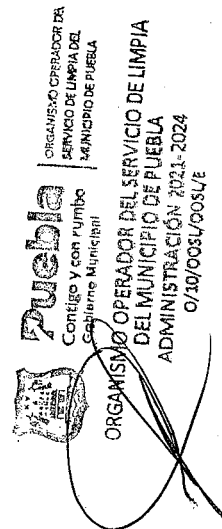 Puebla
Contigo y con rumbo
Gobierno Municipal
ORGANISMO OPERADOR DEL
SERVICIO DE LIMPIA DEL
MUNICIPIO DE PUEBLA
ORGANISMO OPERADOR DEL SERVICIO DE LIMPIA
DEL MUNICIPIO DE PUEBLA
ADMINISTRACIÓN 2021-2024
O/10/OOSL/OOSL/E